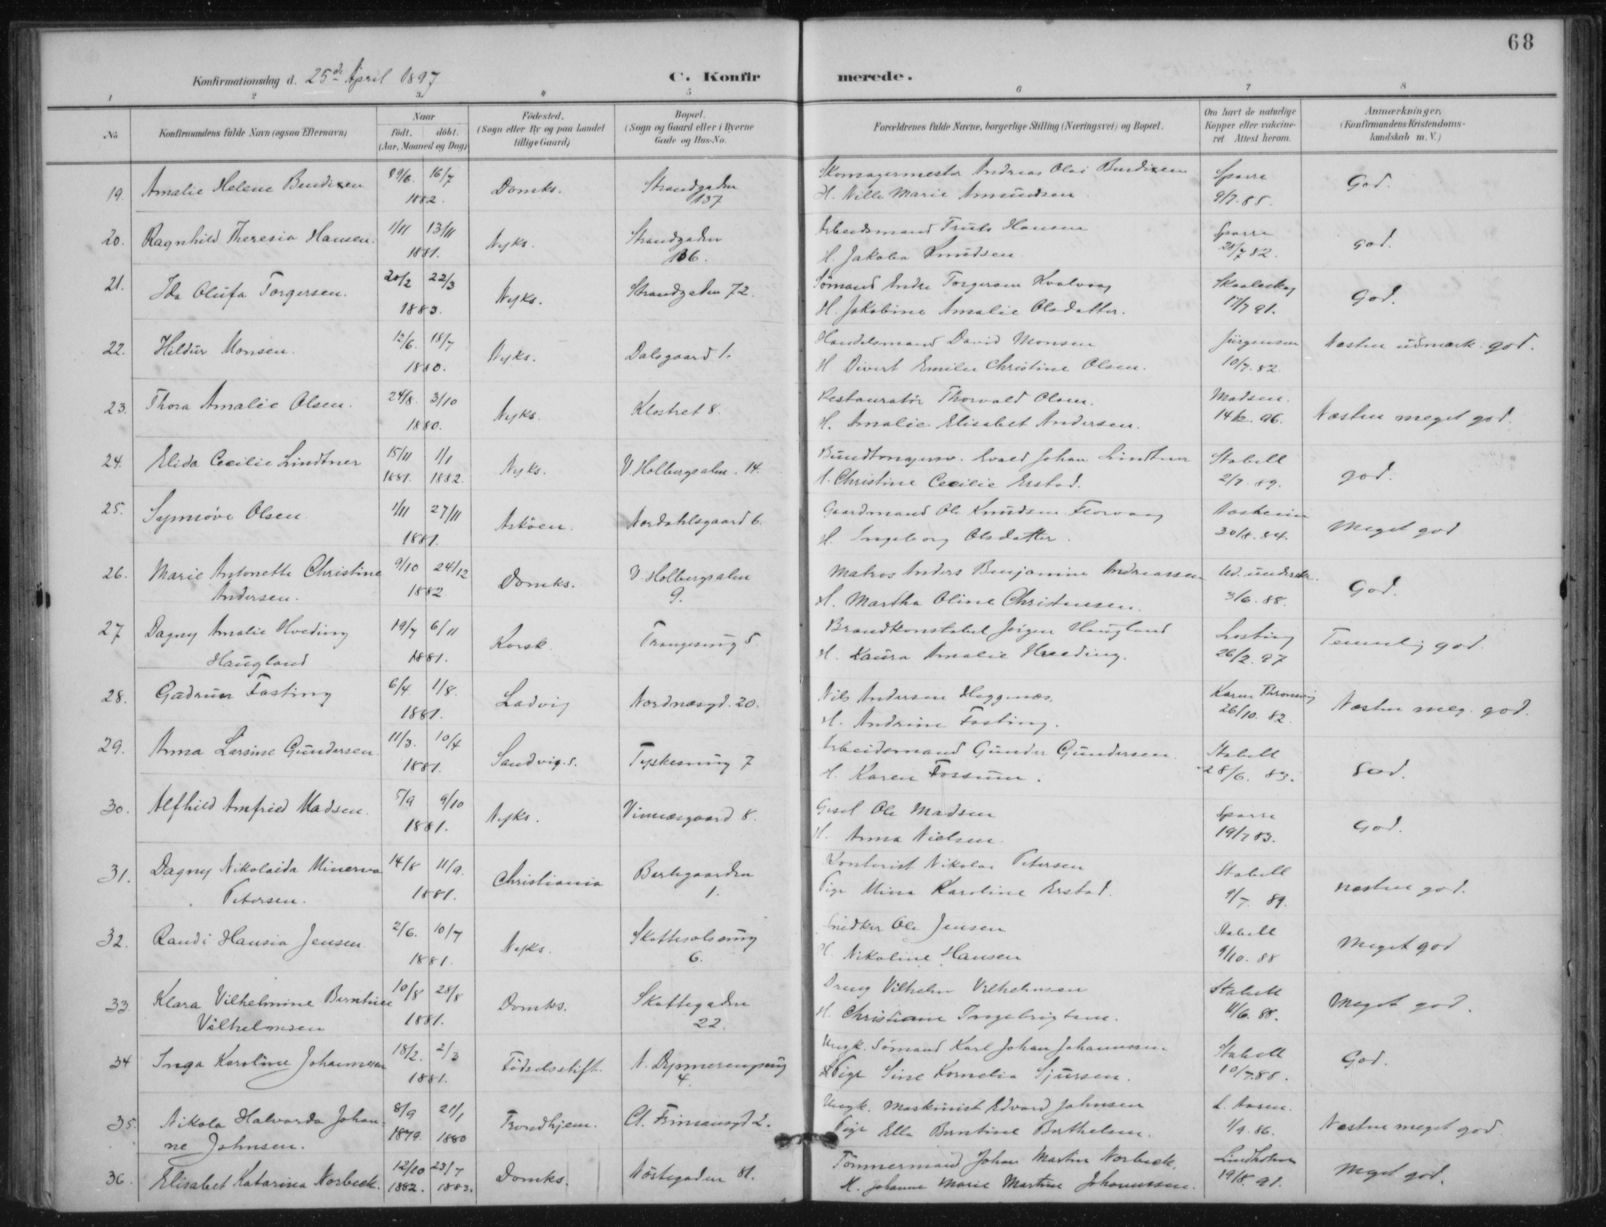 68
Konfirmationsdag d. 25de April 1897
C. Konfir merede.
1 2 3 4 5 6 7 8
No
Konfirmandens fulde Navn (ogsaa Efternavn)
Naar
født. døbt.
(Aar, Maaned og Dag)
Fødested.
(Sogn eller By og paa Landet
tillige Gaard)
Bopæl.
(Sogn og Gaard eller i Byerne
Gade og Hus-No.
Forældrenes fulde Navne, borgerlige Stilling (Næringsvei) og Bopæl.
Om havt de naturlige
Kopper eller vakcine-
ret Attest herom.
Anmærkninger.
(Konfirmandens Kristendoms-
kundskab m. V.)
19. Amalie Helene Bendixen 29/6. 16/7 1882. Domks. Strandgaden 137
Skomagermester Andreas Olai Bendixen Sparre God.
H. Nille Marie Amundsen 9/7.85.
20. Ragnhild Theresia Hansen. 1/11 13/11 1881. Nyks. Strandgaden 136.
Arbeidsmand Truls Hansen Sparre God.
H. Jakobia Knudsen 21/7 82.
21. Ida Olufa Torgersen. 20/2 22/3 1883. Nyks. Strandgaden 72.
Sømand Andre Torgersen Kvalvaag God.
H. Jakobine Amalie Olsdatter. 17/7 91.
22. Hildur Monsen. 12/6. 18/7 1880. Nyks. Dalsgaard 1.
Handelsmand David Monsen Jürgensen Næsten udmærk. god.
H Divert Emilie Christine Olsen. 10/7.82
23. Thora Amalie Olsen. 24/8. 3/10 1880. Nyks. Klostret 8.
Restauratør Thorvald Olsen. Madsen. Næsten meget god.
H. Amalie Elisabet Andersen. 96.
24. Elida Cecilie Lindtner 15/11 1/1 1881. 1882. Nyks. V. Holbergsalm. 14.
Evald Johan Lindtner Stabell god.
H. Christine Cecilie Erstad. 2/7. 89.
25. Synnøve Olsen 1/11 27/11 1881. Askøen. Nordahlsgaard 6.
Gaardmand Ole Knudsen Florvaag Meget god
H. Ingeborg Olsdatter. 84.
26. Marie Antonette Christine 9/10 24/12 Domks. V. Holbergsalm
Andersen. 1882 9.
Matros Anders Benjamin Andreassen God.
H. Martha Oline Christensen. 3/6. 88.
27 Dagny Amalie Hveding 19/7 6/11 Korsk. Trangesmug 5.
Haugland 1881.
Brandkonstabel Jørgen Haugland Temmelig god.
H. Laura Amalie Hveding. 26/2. 97
28. Gudrun Fasting 6/4 1/8. 1881. Ladvig Nordnæsgd. 20.
Nils Andersen Heggenæs. Karen Næsten meg. god.
H. Andrine Fasting. 26/10. 82.
29. Anna Larsine Gundersen. 11/3. 10/4 1881. Sandvigs. Tyskesmug 7
Arbeidsmand Gunder Gundersen Stabell God.
H. Karen Fossum. 28/6. 83.
30. Alfhild Amfried Madsen. 5/9 9/10 1881. Nyks. Vinnæsgaard 8.
Gesel Ole Madsen Sparre God.
H. Anna Nielsen 19/7 83.
31. Dagny Nikolaida Minerva 14/8 11/9. Christiania
Petersen. 1881. 1.
Kontorist Nikolai Petersen Stabell næsten god.
Pige Mina Karoline Erstad. 9/7. 89.
32. Randi Hansia Jensen 2/6. 10/7 1881. Nyks. 6.
Snedker Ole Jensen Stabell Meget god
H. Nikoline Hansen 9/10. 88
33. Klara Vilhelmine Berntine 10/8 28/8 Domks. Skottegaden
Vilhelmsen 1881. 22.
Vilhelm Vilhelmsen Stabell Meget god.
H. Christiane Ingebrigtsen. 11/6. 88.
34 Inga Karoline Johannesen 18/2. 2/3 1881. Fødselsstift. 4.
Ungk. Sømand Karl Johan Johannessen Stabell God.
Pige Sine Kornelia Sjursen. 10/7.88.
35. Nikola Halvarda Johan- 8/9 21/1 Trondhjem.
ne Johnsen. 1879. 1880 2.
Ungk. Maskinist Edvard Johnsen L. Aasen. Næsten meget god.
Pige Ella Berntine Berthelsen. 1/9. 86.
36. Elisabet Katarina Norbeck. 12/10 23/7 1882. 1883. Domks. Nøstegaden 81.
Tømmermand Johan Martin Norbeck. Lindholm Meget god.
H. Johanne Marie Martine Johannessen. 19/8. 91.